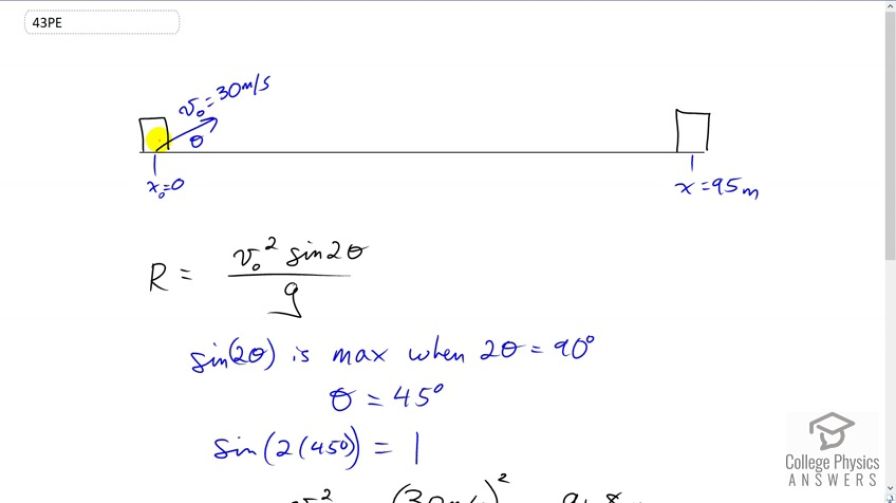 43PE
v₀ = 30 m/s
θ
x₀=0
x = 95 m
R = v₀² sin2θ / g
sin(2θ) is max when 2θ = 90°
θ = 45°
sin(2(450) = 1
College Physics
ANSWERS